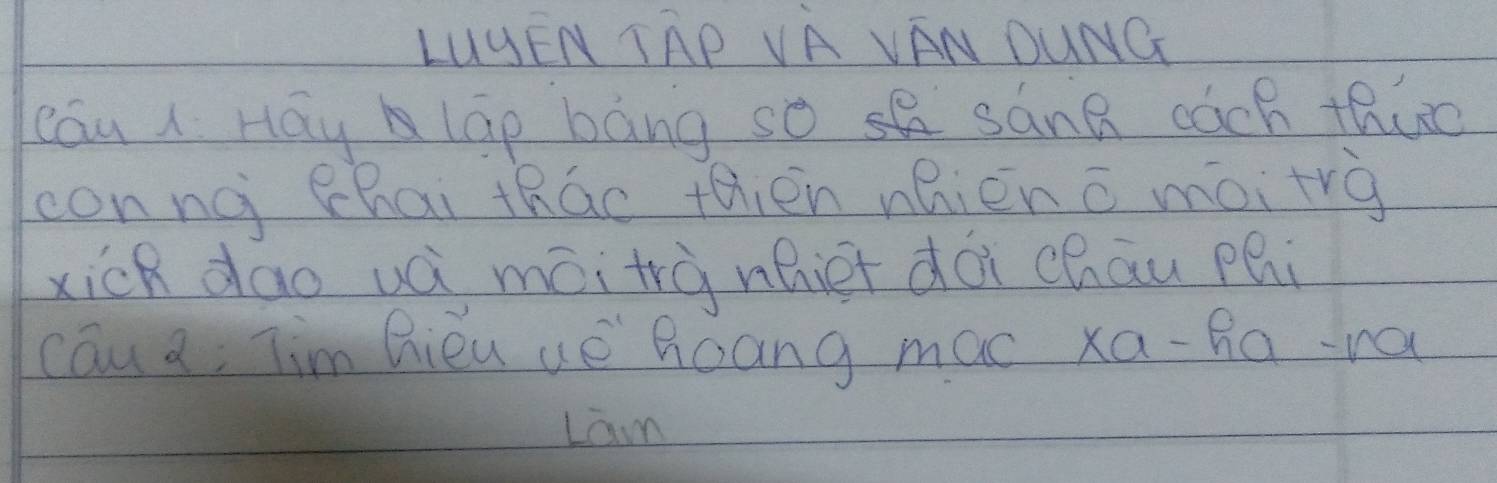 LUYỆN TẬP VÀ VẬN DỤNG
Câu 1. Hãy lập bảng so sánh cách thức
con ng` khai thác thiên nhiên ở môi trg`
xích đạo và môi trg` nhiệt đới châu phi
Câu 2: Tìm hiểu về hoang mạc xa-ha-ra
Làm